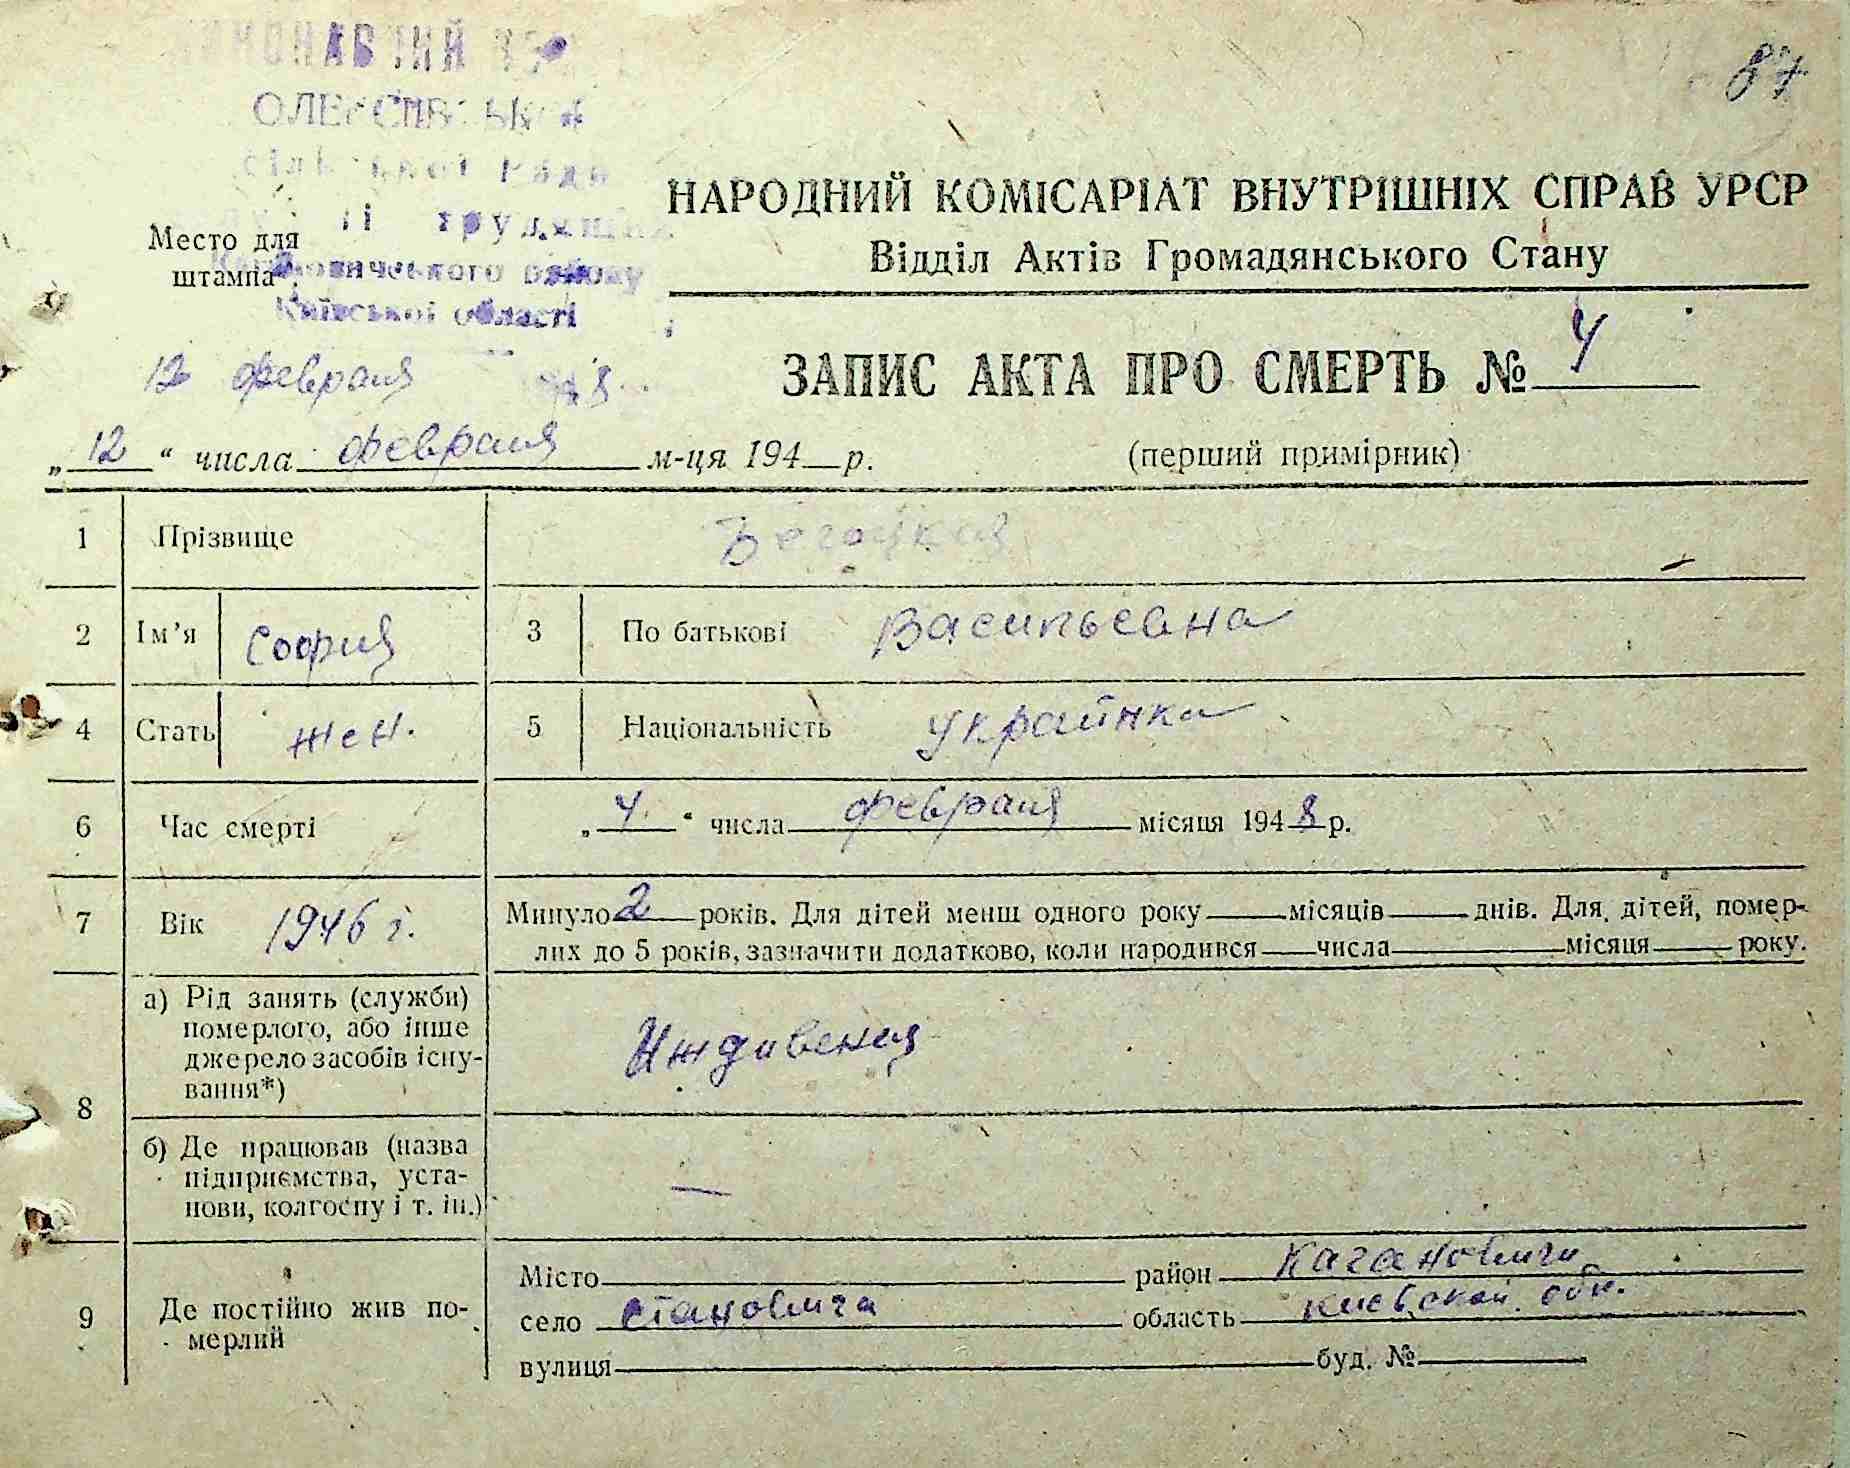 87
Место для
штампа
Київської області
НАРОДНИЙ КОМІСАРІАТ ВНУТРІШНІХ СПРАВ УРСР
Відділ Актів Громадянського Стану
12 февраля 1948
ЗАПИС АКТА ПРО СМЕРТЬ № 4
„12“ числа февраля м-ця 194 р. (перший примірник)
1 Прізвище
2 Ім’я София 3 По батькові Васильевна
4 Стать жен. 5 Національність украинка
6 Час смерті „4“ числа февраля місяця 1948 р.
7 Вік 1946 г. Минуло 2 років. Для дітей менш одного року місяців днів. Для дітей, помер-
лих до 5 років, зазначити додатково, коли народився числа місяця року.
8 а) Рід занять (служби)
померлого, або інше
джерело засобів існу-
вання*)
Иждивенец
б) Де працював (назва
підприємства, уста-
нови, колгоспу і т. ін.)
—
9 Де постійно жив по-
мерлий
Місто район Кагановичи
село Становича область киевской обл.
вулиця буд. №